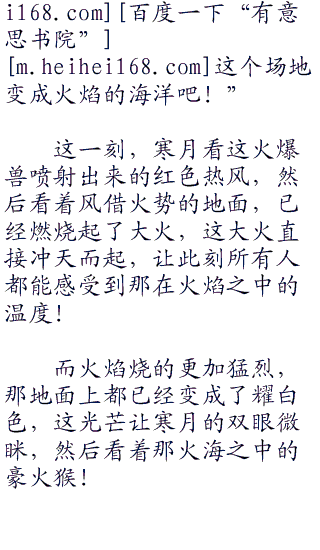 i168.com][百度一下“有意
思书院”]
[m.heihei168.com]这个场地
变成火焰的海洋吧！”
这一刻，寒月看这火爆
兽喷射出来的红色热风，然
后看着风借火势的地面，已
经燃烧起了大火，这大火直
接冲天而起，让此刻所有人
都能感受到那在火焰之中的
温度！
而火焰烧的更加猛烈，
那地面上都已经变成了耀白
色，这光芒让寒月的双眼微
眯，然后看着那火海之中的
豪火猴！